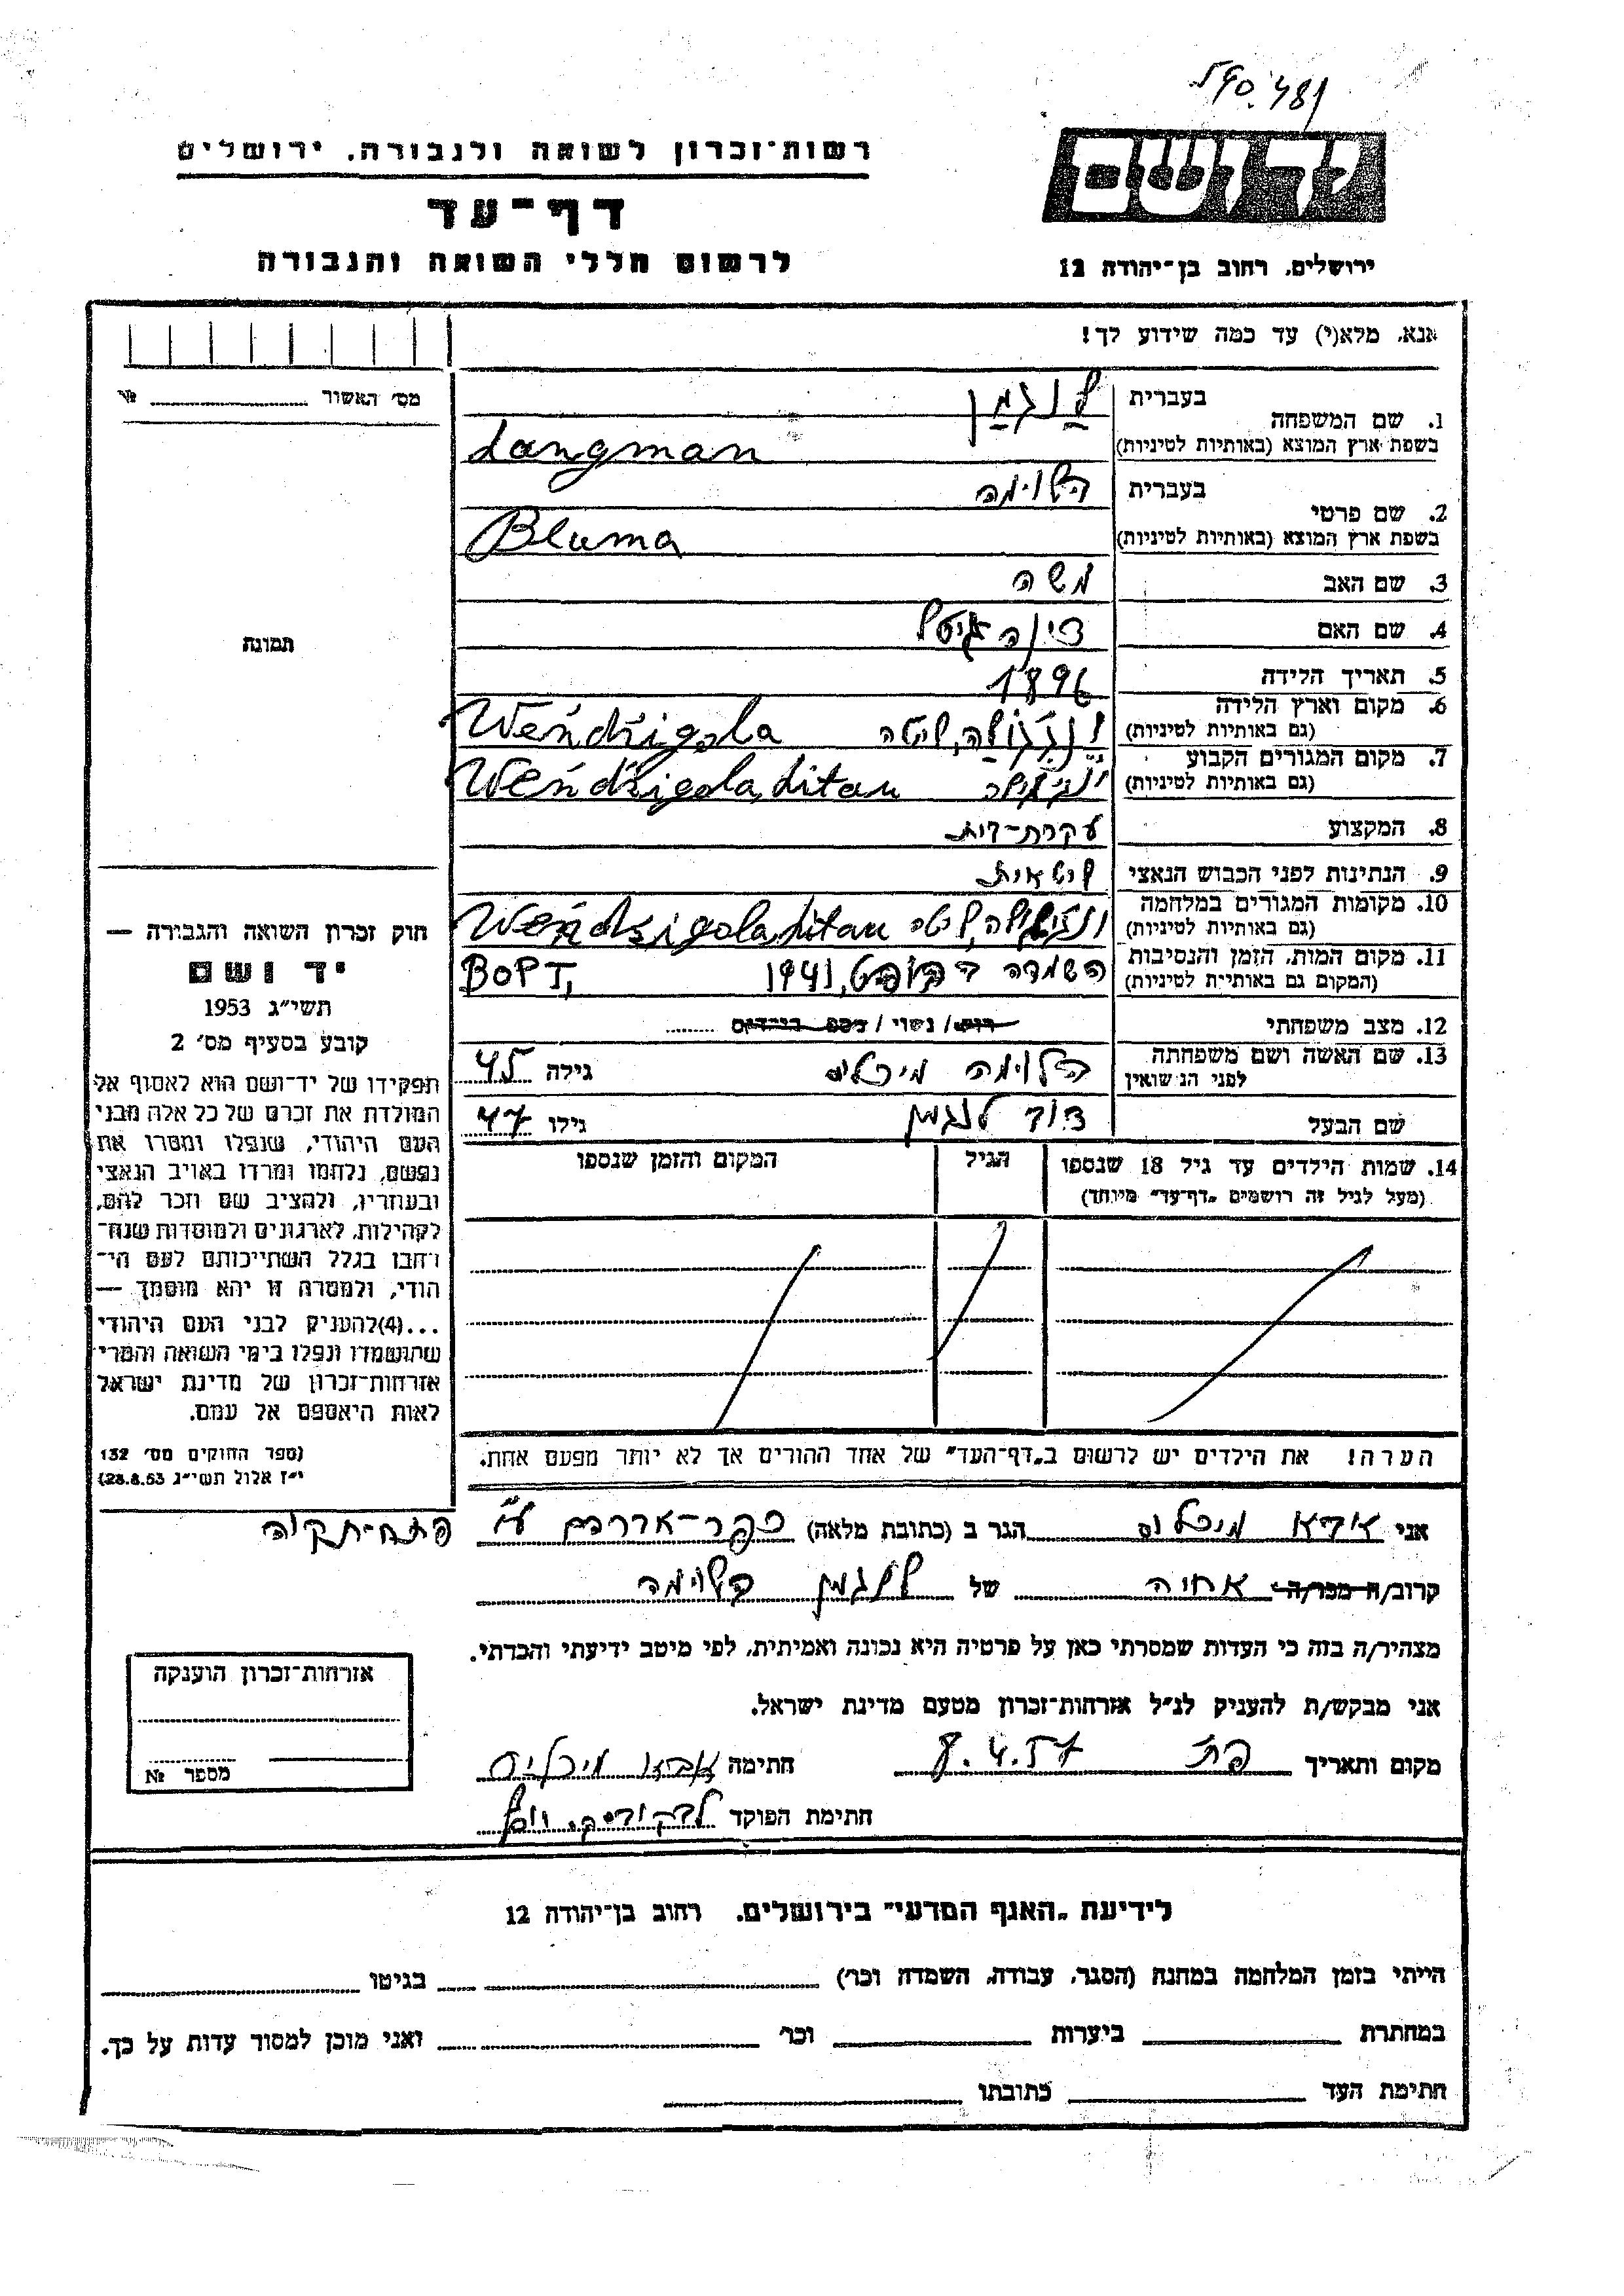 590.481
יד ושם
רשות־זכרון לשואה ולגבורה, ירושלים
דף־עד
לרשום חללי השואה והגבורה
ירושלים, רחוב בן־יהודה 12
אנא, מלא(י) עד כמה שידוע לך!
מס' האשור №
1. שם המשפחה בעברית לנגמן
בשפת ארץ המוצא (באותיות לטיניות) Langman
2. שם פרטי בעברית בלומה
בשפת ארץ המוצא (באותיות לטיניות) Bluma
3. שם האב משה
4. שם האם דינה
תמונה
5. תאריך הלידה 1896
6. מקום וארץ הלידה (גם באותיות לטיניות) ליטה Weńdźigola
7. מקום המגורים הקבוע (גם באותיות לטיניות) Weńdźigola, Litau
8. המקצוע עקרת-בית
9. הנתינות לפני הכבוש הנאצי ליטאית
10. מקומות המגורים במלחמה (גם באותיות לטיניות) ליטה Weńdźigola, Litau
11. מקום המות, הזמן והנסיבות (המקום גם באותיות לטיניות) השמדה 1941 BOPT,
12. מצב משפחתי רוק / נשוי / מספר הילדים
13. שם האשה ושם משפחתה לפני הנשואין בלומה מיכליס גילה 45
שם הבעל דוד לנגמן גילו 47
14. שמות הילדים עד גיל 18 שנספו (מעל לגיל זה רושמים „דף־עד" מיוחד) הגיל המקום והזמן שנספו
הערה! את הילדים יש לרשום ב„דף־העד" של אחד ההורים אך לא יותר מפעם אחת.
חוק זכרון השואה והגבורה —
יד ושם
תשי"ג 1953
קובע בסעיף מס' 2
תפקידו של יד־ושם הוא לאסוף אל
המולדת את זכרם של כל אלה מבני
העם היהודי, שנפלו ומסרו את
נפשם, נלחמו ומרדו באויב הנאצי
ובעוזריו, ולהציב שם וזכר להם,
לקהילות, לארגונים ולמוסדות שנח־
רבו בגלל השתייכותם לעם הי־
הודי, ולמטרה זו יהא מוסמך —
...(4) להעניק לבני העם היהודי
שהושמדו ונפלו בימי השואה והמרי
אזרחות־זכרון של מדינת ישראל
לאות היאספם אל עמם.
(ספר החוקים מס' 132
י"ז אלול תשי"ג 28.8.53)
אני מיכליס הגר ב (כתובת מלאה) כפר-אברהם פתח-תקוה
קרוב/ה מכר/ה אחיה של לנגמן בלומה
מצהיר/ה בזה כי העדות שמסרתי כאן על פרטיה היא נכונה ואמיתית, לפי מיטב ידיעתי והכרתי.
אני מבקש/ת להעניק לנ"ל אזרחות־זכרון מטעם מדינת ישראל.
מקום ותאריך פת 8.4.57 חתימה מיכליס
חתימת הפוקד
אזרחות־זכרון הוענקה
מספר №
לידיעת „האגף המדעי" בירושלים, רחוב בן־יהודה 12
הייתי בזמן המלחמה במחנה (הסגר, עבודה, השמדה וכו') בגיטו
במחתרת ביערות וכו' ואני מוכן למסור עדות על כך.
חתימת העד כתובתו